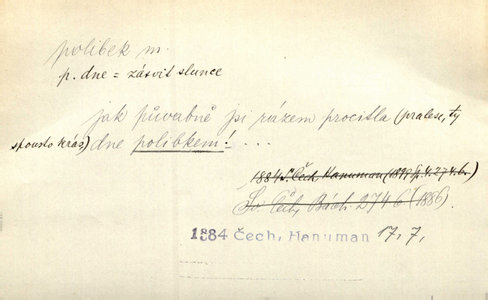 polibek m.
p. dne = zásvit slunce
jak půvabně jsi rázem procitla (pralese, ty
spousto krás) dne polibkem! ...
1884 S. Čech Hanuman (1899 p. 4. 274 b.)
Sv. Čech, Básn. 274 b (1886)
1884 Čech, Hanuman 17, 7,